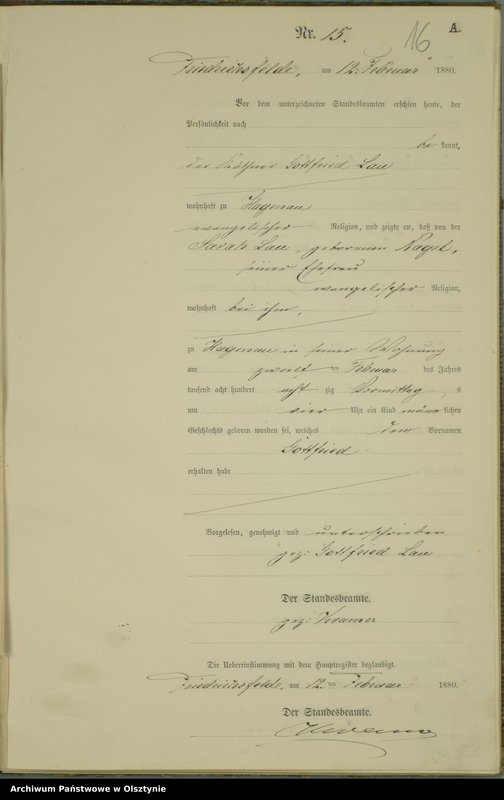 Nr. 15.
16
A.
Friedrichsfelde, am 12. Februar 1880.
Vor dem unterzeichneten Standesbeamten erschien heute, der
Persönlichkeit nach
be kannt,
der Käthner Gottfried Lau
wohnhaft zu Hagenau
evangelischer Religion, und zeigte an, daß von der
Sarah Lau, geborenen Nagel,
seiner Ehefrau
evangelischer Religion,
wohnhaft bei ihm,
zu Hagenau in seiner Wohnung
am zwölf ten Februar des Jahres
tausend acht hundert acht zig Vormittag s
um vier Uhr ein Kind männ lichen
Geschlechts geboren worden sei, welches den Vornamen
Gottfried
erhalten habe
Vorgelesen, genehmigt und unterschrieben
gez: Gottfried Lau
Der Standesbeamte.
gez: Kramer
Die Uebereinstimmung mit dem Hauptregister beglaubigt.
Friedrichsfelde, am 12. ten Februar 1880.
Der Standesbeamte.
Archiwum Państwowe w Olsztynie